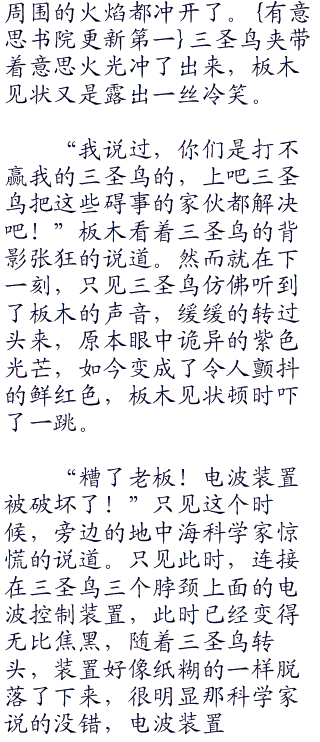 周围的火焰都冲开了。{有意
思书院更新第一}三圣鸟夹带
着意思火光冲了出来，板木
见状又是露出一丝冷笑。
“我说过，你们是打不
赢我的三圣鸟的，上吧三圣
鸟把这些碍事的家伙都解决
吧！”板木看着三圣鸟的背
影张狂的说道。然而就在下
一刻，只见三圣鸟仿佛听到
了板木的声音，缓缓的转过
头来，原本眼中诡异的紫色
光芒，如今变成了令人颤抖
的鲜红色，板木见状顿时吓
了一跳。
“糟了老板！电波装置
被破坏了！”只见这个时
候，旁边的地中海科学家惊
慌的说道。只见此时，连接
在三圣鸟三个脖颈上面的电
波控制装置，此时已经变得
无比焦黑，随着三圣鸟转
头，装置好像纸糊的一样脱
落了下来，很明显那科学家
说的没错，电波装置